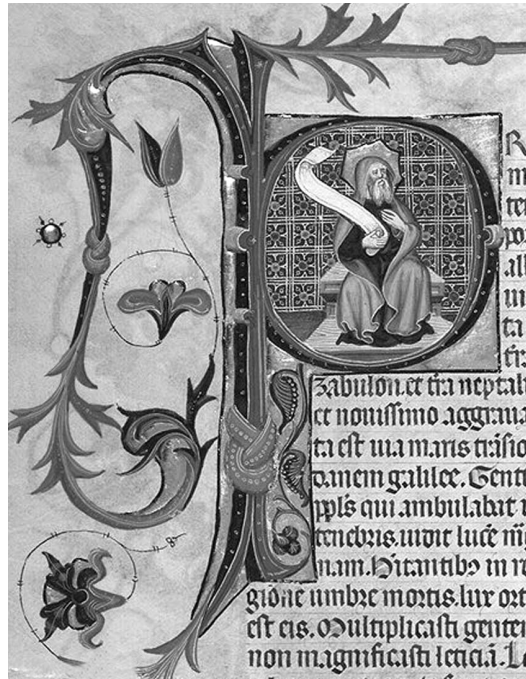 P R
m
te
po
all
ui
ta
tra
zabulon. et tra neptali
et nouissimo aggraua
ta est uia maris trāsio
danem galilee. Gent
ppls qui ambulabat
tenebris. uidit lucē
nam. Hitantibꝫ in re
gione umbre mortis. lux ort
est eis. Multiplicasti gentem
non magnificasti leticiā.